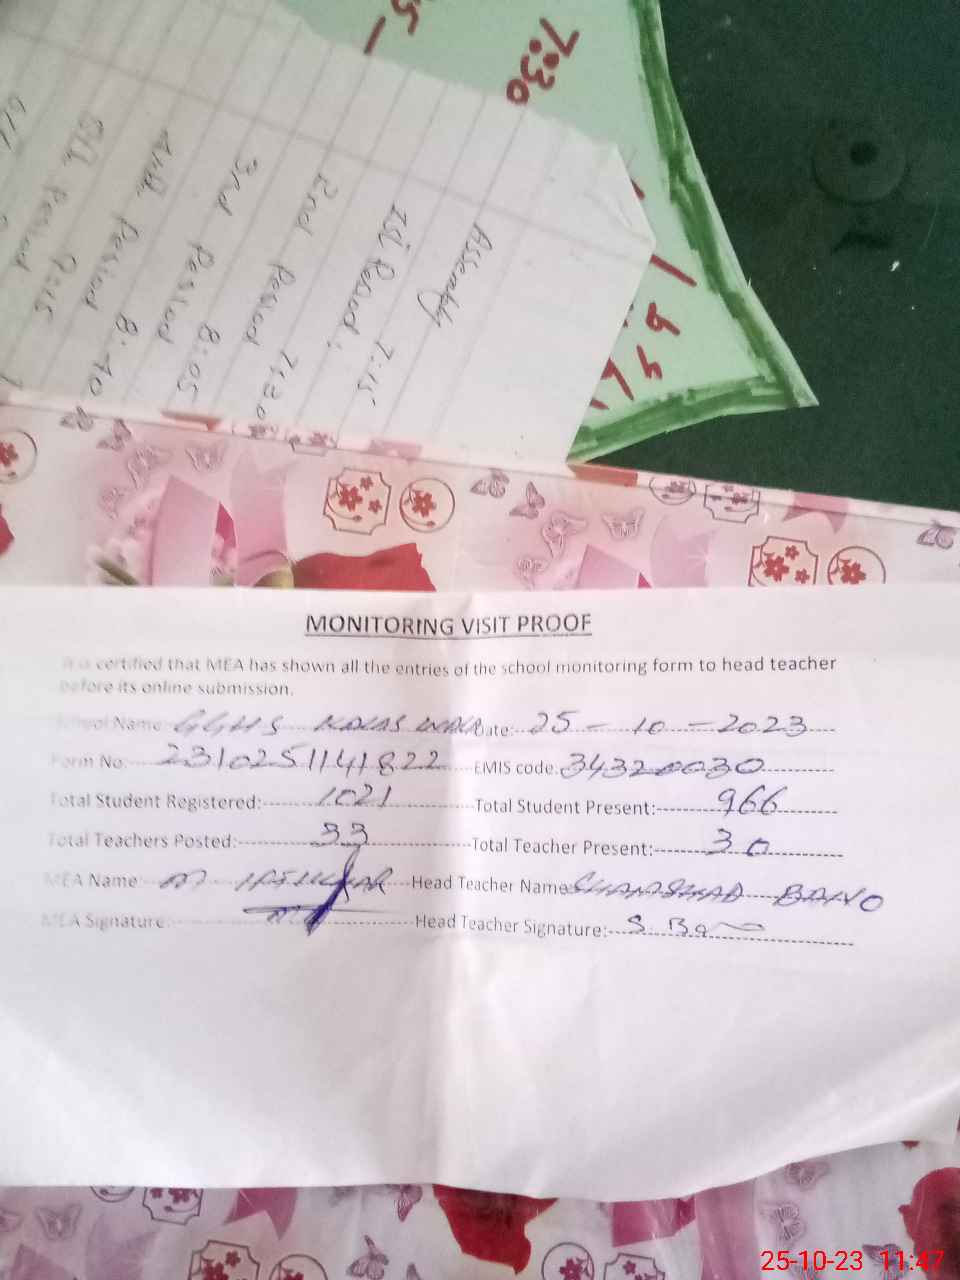 7:30
Assembly
Ist Period: 7:15
2nd Period 7:30
3rd Period 8:05
Period 8:40
Period 9:15
MONITORING VISIT PROOF
It is certified that MEA has shown all the entries of the school monitoring form to head teacher
before its online submission.
School Name: GGHS WALA Date: 25-10-2023
Form No. 2310251141822 EMIS code: 34320030
Total Student Registered: 1021 Total Student Present: 966
Total Teachers Posted: 33 Total Teacher Present: 30
MEA Name: M IFTIKHAR Head Teacher Name: SHAMSHAD BANO
MEA Signature: Head Teacher Signature: S. Bano
25-10-23 11:47